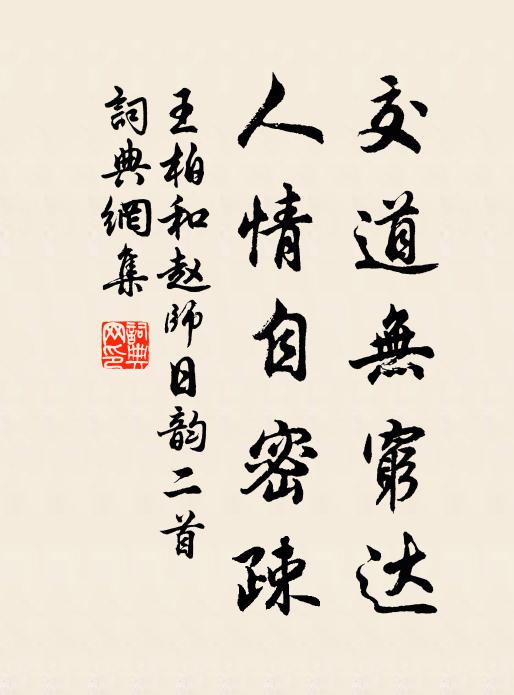 交道無窮达
人情自密疎
王柏和赵師日韵二首
詞典網集
詞典网印